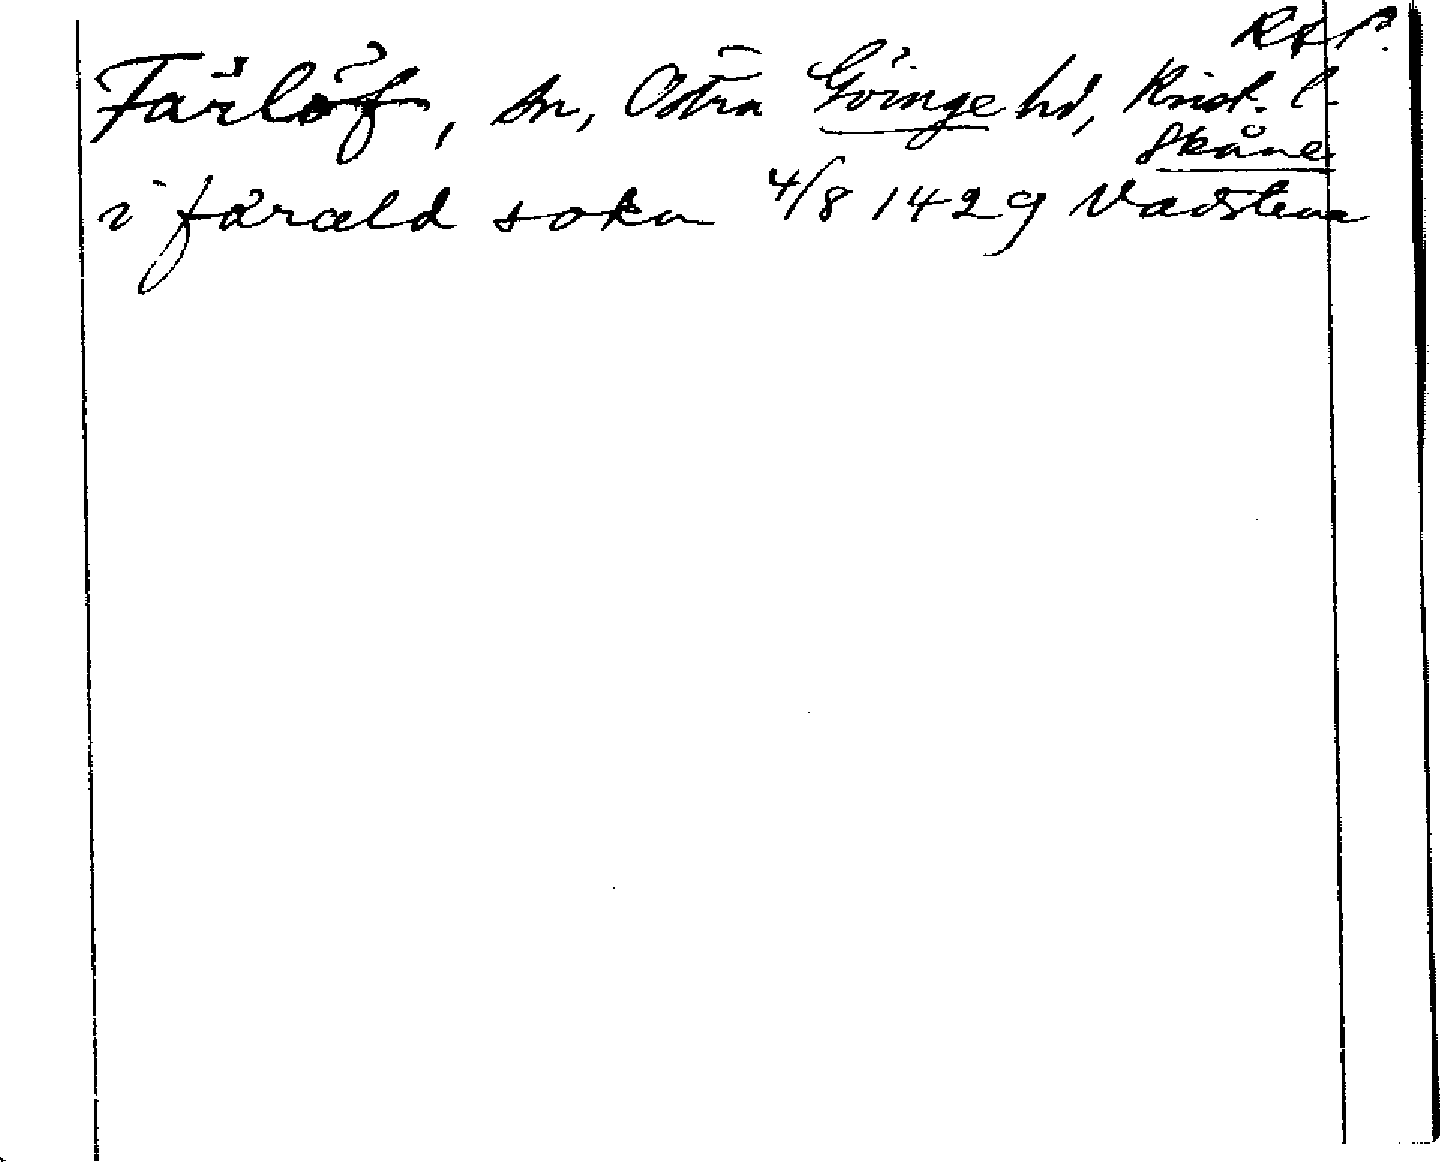 RAP.
Färlöf, sn, Östra Göinge hd, Krist. l.
Skåne
i färæld sokn 4/8 1429 Vadstena